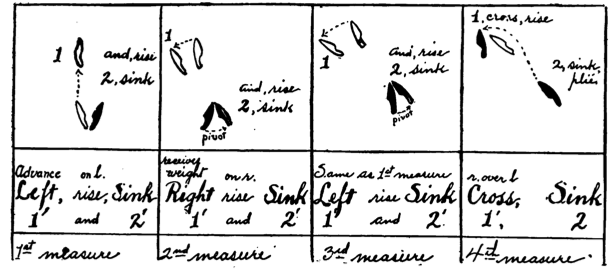 1
and, rise
2, sink
1
and, rise
2, sink
pivot
1
and, rise
2, sink
pivot
1, cross, rise
2, sink,
plié
Advance on l.
Left, rise, Sink
1' and 2'
receives
weight on r.
Right rise Sink
1' and 2'
Same as 1st measure
Left rise Sink
1' and 2'
r. over l
Cross, Sink
1', 2
1st measure
2nd measure
3rd measure
4th measure.